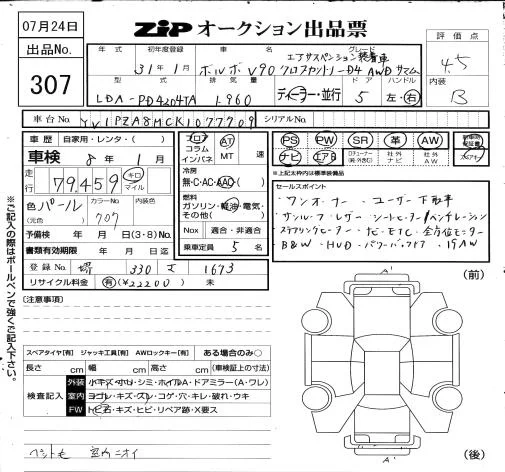 07月24日
ZiP オークション出品票
評価点
4.5
出品No.
307
年式 初年度登録 車名 グレード
エアサスペンション装着車
31年1月 ボルボ V90 クロスカントリー D4 AWD サマム
型式 排気量 ドア ハンドル
LDA-PD4204TA 1,960 ディーラー・並行 5 左・右
内装
B
車台No. YV1PZA8MCK1077709 シリアルNo.
車歴 自家用・レンタ・( )
車検 8年 1月
走行 79,459 キロ マイル
色 パール カラーNo. 707 内装色
(元色)
予備検 年 月 日(3・8)No.
書類有効期限 年 月 日迄
登録No. 堺 330 そ 1673
リサイクル料金 有(¥22200) 未
フロア コラム インパネ AT MT 速
冷房
無・C・AC・AAC・( )
燃料
ガソリン・軽油・電気・その他( )
Nox 適合・非適合
乗車定員 5名
PS PW SR 革 AW
ナビ エアB 社外ナビ 社外AW
新車時保証書
スペアキー
※上記太枠内は標準装備品
セールスポイント
・ワンオーナー ・ユーザー下取車
サンルーフ レザー シートヒーター/ベンチレーション
ステアリングヒーター ナビ・ETC 全方位モニター
B&W HUD パワーバックドア 19AW
※ご記入の際はボールペンで強くご記入下さい。
(注意事項)
スペアタイヤ[有] ジャッキ工具[有] AWロックキー[有] ある場合のみ○
長さ cm 幅 cm 高さ cm (車検証上の寸法)
検査記入
外装 小キズ・凹リ・シミ・ホイルA・ドアミラー(A・ワレ)
室内 ヨゴレ・キズ・スレ・コゲ・穴・キレ・破れ・ウキ
FW トビ石・キズ・ヒビ・リペア跡・X要ス
ペット毛 室内ニオイ
A'
(前)
A'
(後)